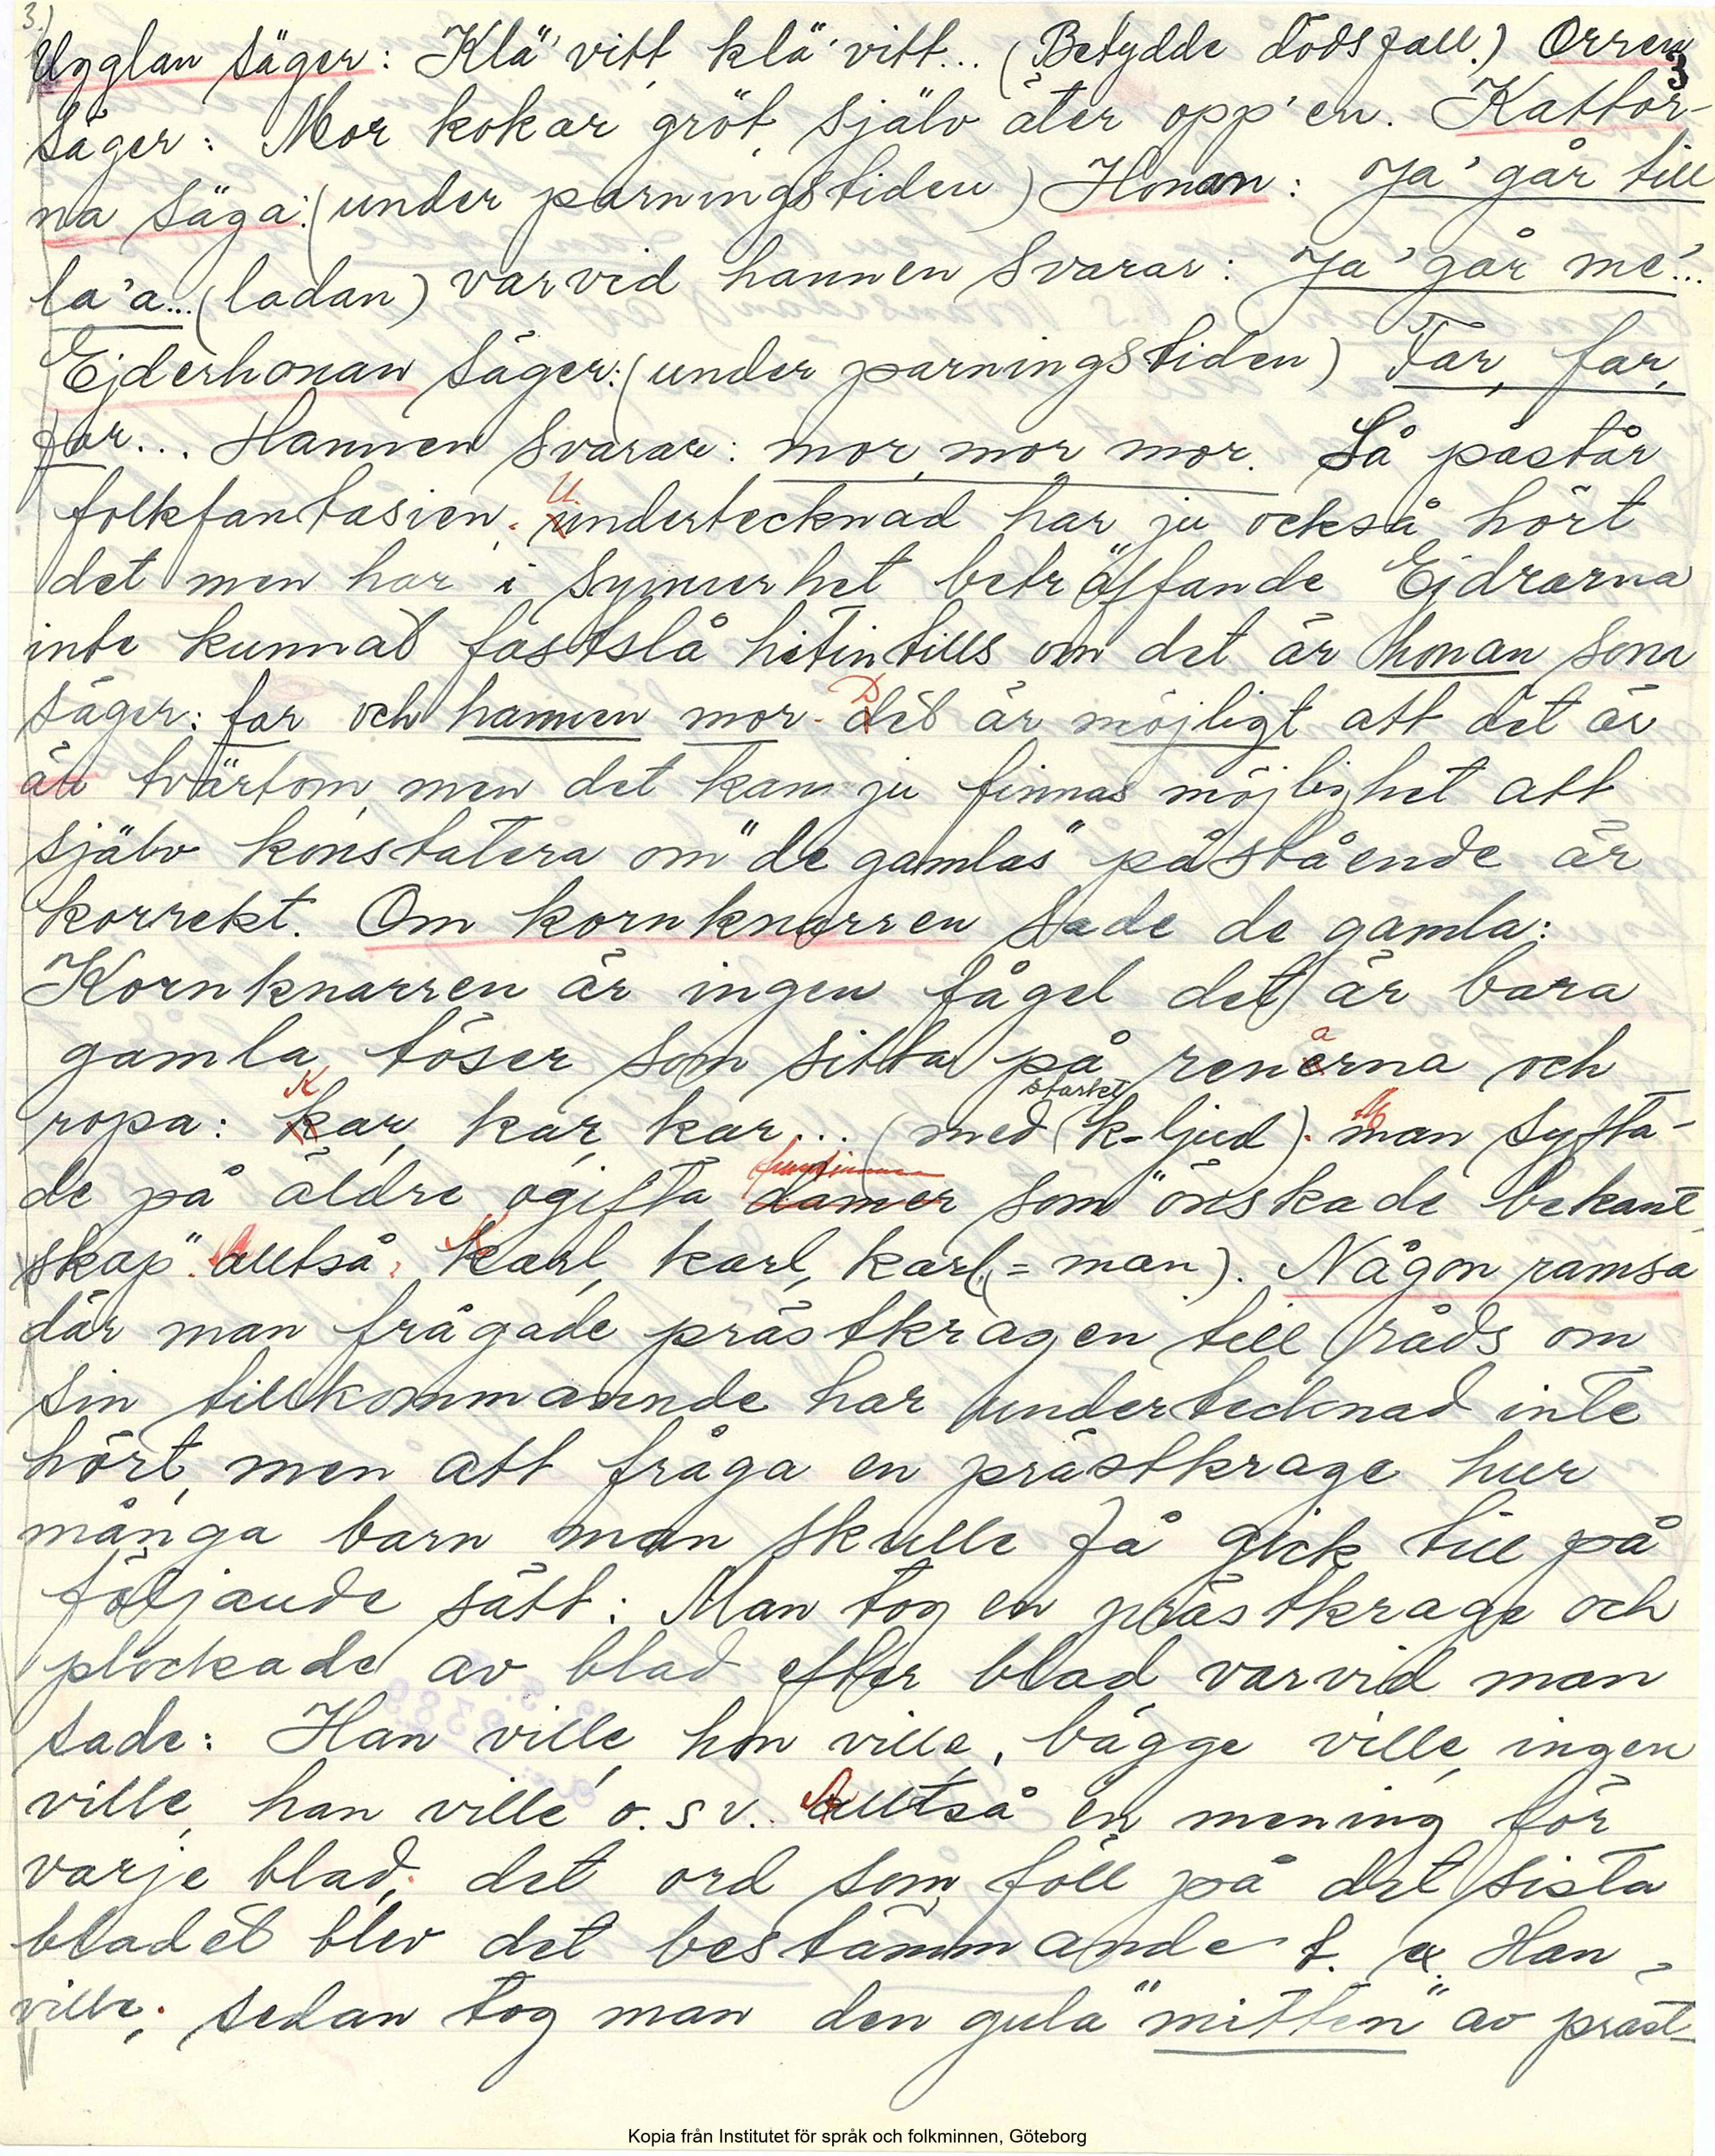 3.)
Ugglan säger: Klä' vitt, klä' vitt... (Betydde dödsfall.) Orren
3
säger: Mor kokar gröt, själv äter opp'en. Kattor-
na säga: (under parningstiden) Honan: Ja' går till
la'a... (ladan) varvid hannen svarar: Ja' går me'...
Ejderhonan säger: (under parningstiden) Far, far,
far... Hannen svarar: mor, mor, mor. Så påstår
folkfantasien. Undertecknad har ju också hört
det men har i synnerhet beträffande Ejdrarna
inte kunnat fastslå hitintills om det är honan som
säger: far och hannen mor. Det är möjligt att det är
är tvärtom, men det kan ju finnas möjlighet att
själv konstatera om "de gamlas" påstående är
korrekt. Om kornknarren sade de gamla:
Kornknarren är ingen fågel det är bara
gamla töser som sitta på renarna och
ropa: Kar, kar, kar... (med starkt k-ljud). Man syfta-
de på äldre ogifta damer som "önskade bekant-
skap". Alltså: Karl, karl, karl (= man). Någon ramsa
där man frågade prästkragen till råds om
sin tillkommande har undertecknad inte
hört, men att fråga en prästkrage hur
många barn man skulle få gick till på
följande sätt: Man tog en prästkrage och
plockade av blad efter blad varvid man
sade: Han ville, hon ville, bägge ville, ingen
ville, han ville o.s v. Alltså en mening för
varje blad; det ord som föll på det sista
bladet blev det bestämmande t. ex. Han
ville; sedan tog man den gula "mitten" av präst-
Kopia från Institutet för språk och folkminnen, Göteborg